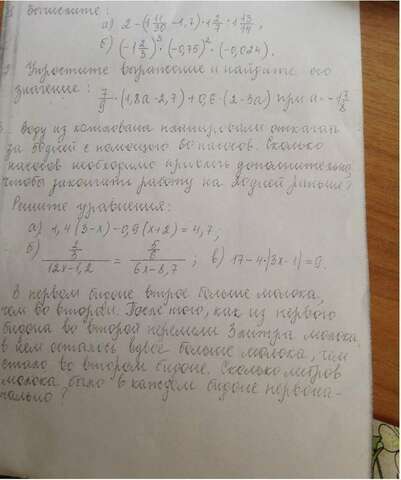 Вычислите:
а) 2 - (1 11/20 - 1,7) · 1 2/7 : 1 13/14 ;
б) (-1 2/3)³ · (-0,75)² · (-0,024).
Упростите выражение и найдите его
значение:
7/9 · (1,8a - 2,7) + 0,6 · (2 - 3a) при a = -1 3/8
Воду из котлована планировали откачать
за дней с помощью насосов. Сколько
насосов необходимо дополнительно,
чтобы закончить работу на дней раньше?
Решите уравнения:
а) 1,4(3-x) - 0,9(x+2) = 4,7;
б) /12x-1,2 = /6x-8,7 ; в) 17-4·|3x-1|=9.
В первом бидоне втрое больше молока,
чем во втором. После того, как из первого
бидона во второй перелили 3 литра молока,
в нем осталось вдвое больше молока, чем
стало во втором бидоне. Сколько литров
молока было в каждом бидоне первона-
чально?